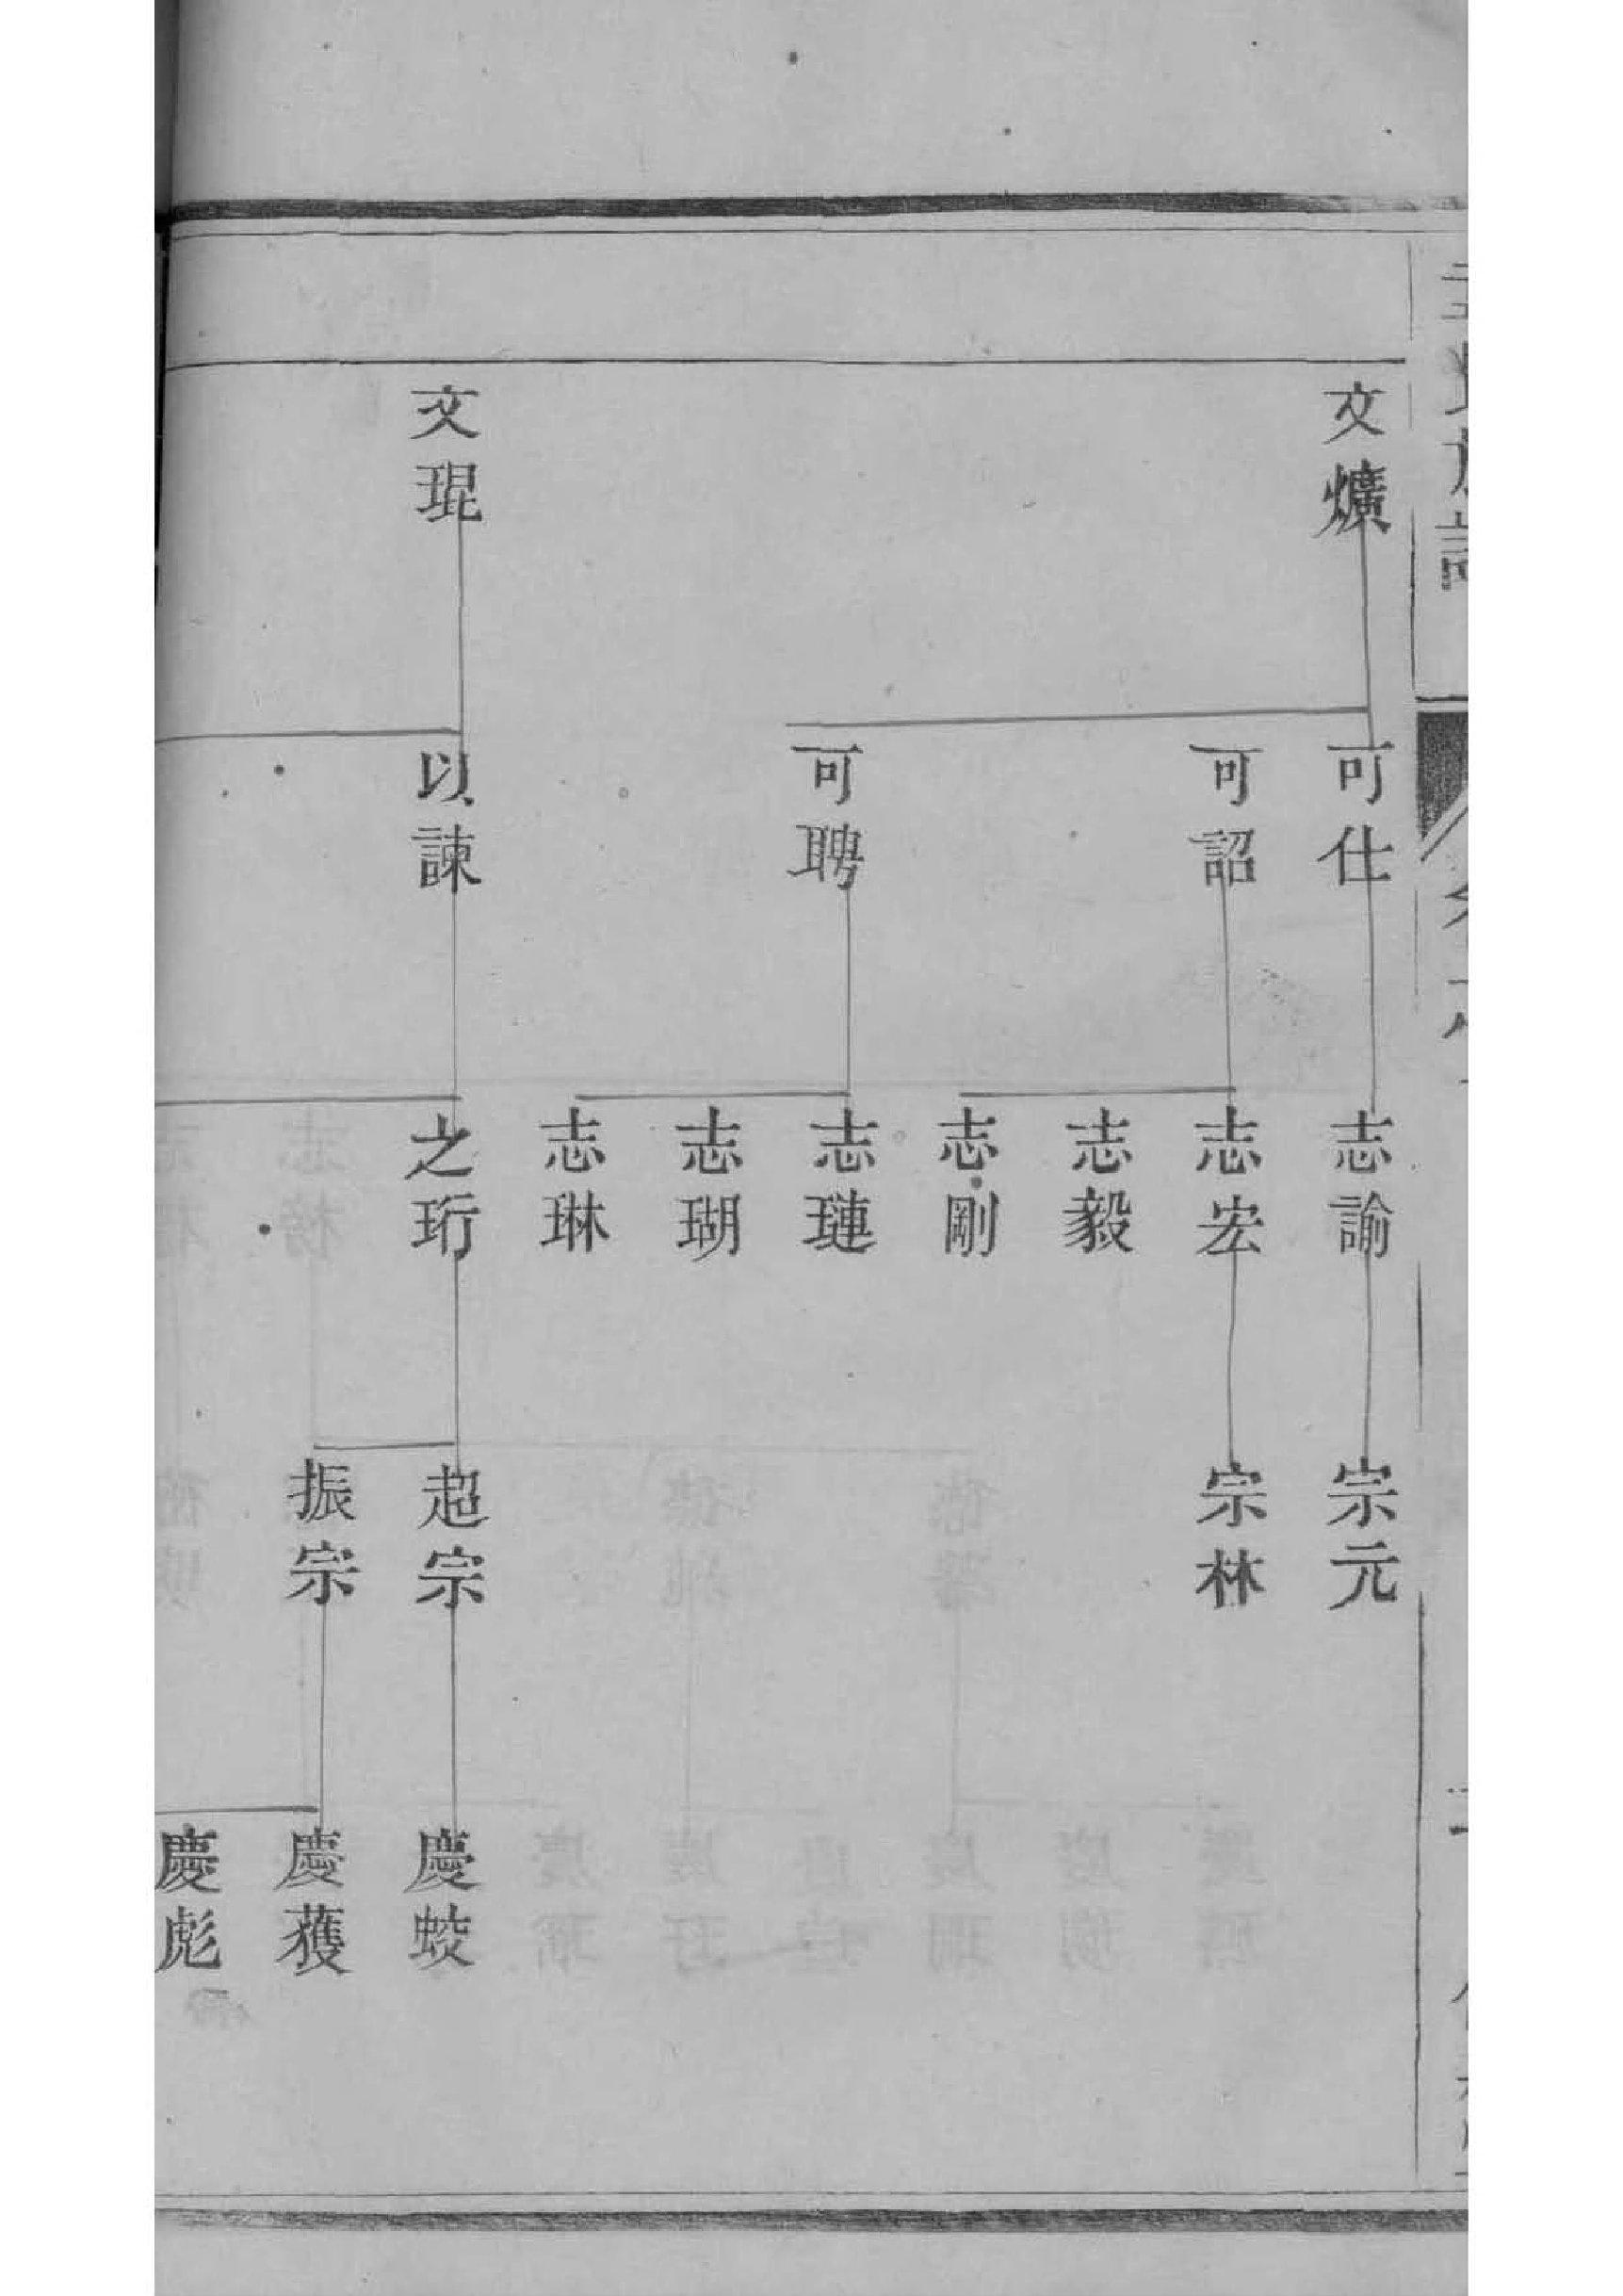 文爌
可仕
可詔
可聘
志諭
志宏
志毅
志剛
志璉
志瑚
志琳
宗元
宗林
文琨
以諫
之珩
超宗
振宗
慶蛟
慶蒦
慶彪